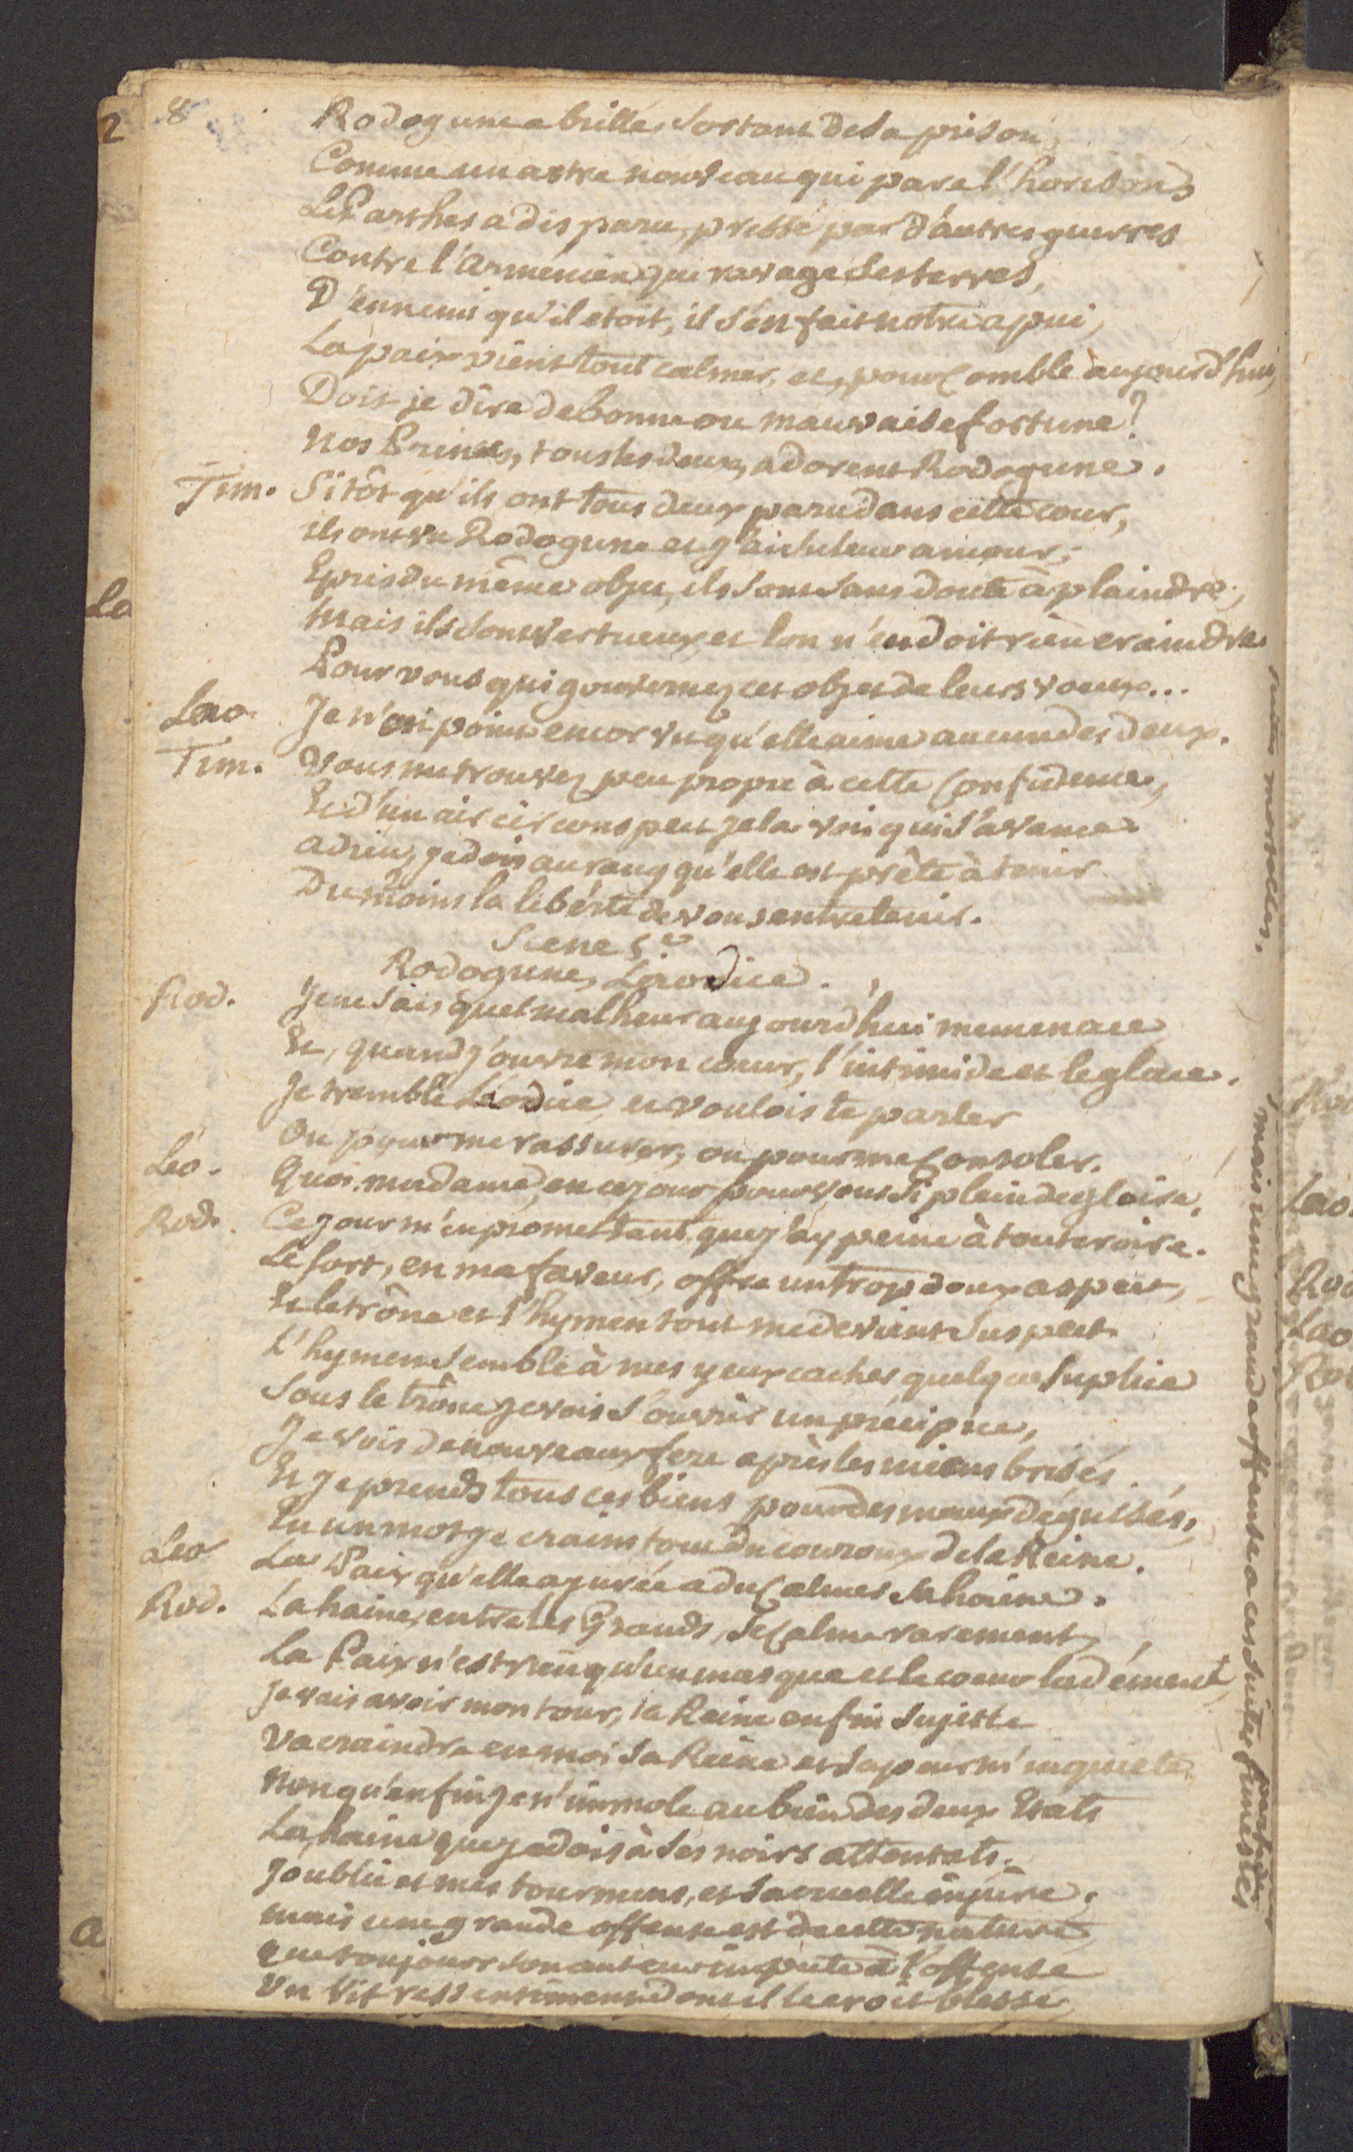 8
Rodogune a brillé, sortant de sa prison,
Comme un astre nouveau qui pare l'horison,
Le Parthes a disparu, pressé par d'autres guerres
Contre l'arménien qui ravage ses terres,
D'ennemi qu'il etoit, il s'en fait notre apui,
La paix vient tout calmer, et, pour comble aujourd'hui,
Dois je dire de bonne ou mauvaise fortune?
Nos Princes, tous les deux, adorent Rodogune.
Tim. Sitôt qu'ils ont tous deux paru dans cette cour,
ils ont vu Rodogune et j'ai su leur amour;
Epris du même objet, ils sont sans doute à plaindre,
Mais ils sont vertueux et l'on n'en doit rien craindre
Pour vous qui gouvernez cet objet de leurs voeux...
Lao Je n'ai point encor vu qu'elle aime aucun des deux.
Tim. Vous me trouvez peu propre à cette confidence,
Et d'un air circonspect je la vois qui s'avance
adieu, je dois au rang qu'elle est prête à tenir
Du moins la liberté de vous entretenir.
Scene 5e
Rodogune, Laodice.
Rod. Je ne sais quel malheur aujourd'hui me menace
Et, quand j'ouvre mon coeur, l'intimide et le glace.
Je tremble Léodice, et voulois te parler
Ou pour me rassurer, ou pour me consoler.
Léo. Quoi, madame, en ce jour pour vous si plein de gloire,
Rod. Ce jour m'en promet tant que j'ay peine à tout croire.
Le sort, en ma faveur, offre un trop doux aspect,
Et le trône et l'hymen tout me devient suspect.
L'hymen semble à mes yeux cacher quelque suplice
Sous le trône je vois s'ouvrir un précipice,
Je vois de nouveaux fers après les miens brisés
Et je prends tous ces biens pour des maux déguisés,
En un mot je crains tout du couroux de la Reine.
Leo La Paix qu'elle a jurée a du calmer sa haine.
Rod. La haine, entre les Grands, se calme rarement,
La Paix n'est rien qu'un masque et le coeur la dément,
je vais avoir mon tour, la Reine enfin sujette
Va craindre en moi sa Reine et sa peur m'inquiete
Non qu'enfin je n'immole au bien des deux Etats
La haine que je dois à ses noirs attentats.
J'oublie et mes tourmens, et sa cruelle injure,
mais une grande offense est de cette nature,
que toujours son auteur impute à l'offensé
Un vif ressentiment dont il le croit blessé,
mais une grande offense a ces suites funestes
2
La
a
Rod
Lao.
Rod
Lao
Rod